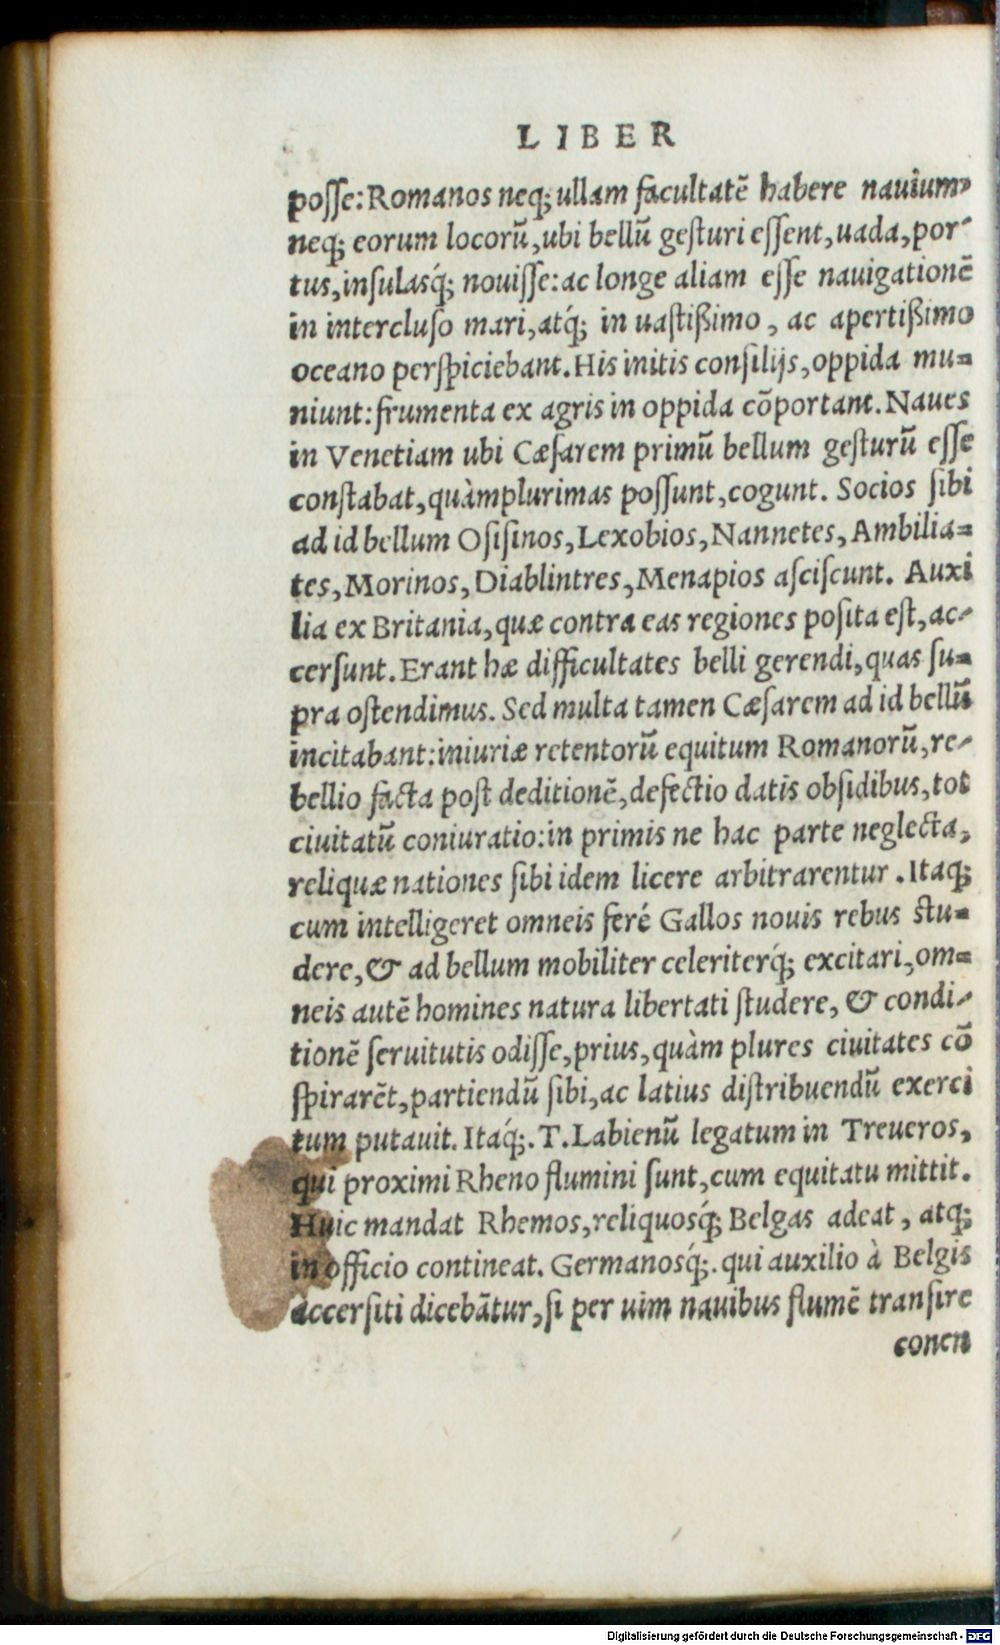 LIBER
posse: Romanos neq; ullam facultatē habere nauium,
neq; eorum locorū, ubi bellū gesturi essent, uada, por-
tus, insulasq́; nouisse: ac longe aliam esse nauigationē
in intercluso mari, atq́; in uastißimo, ac apertißimo
oceano perspiciebant. His initis consilijs, oppida mu-
niunt: frumenta ex agris in oppida cōportant. Naues
in Venetiam ubi Cæsarem primū bellum gesturū esse
constabat, quàmplurimas possunt, cogunt. Socios sibi
ad id bellum Osisinos, Lexobios, Nannetes, Ambilia-
tes, Morinos, Diablintres, Menapios asciscunt. Auxi
lia ex Britania, quæ contra eas regiones posita est, ac-
cersunt. Erant hæ difficultates belli gerendi, quas su-
pra ostendimus. Sed multa tamen Cæsarem ad id bellū
incitabant: iniuriæ retentorū equitum Romanorū, re-
bellio facta post deditionē, defectio datis obsidibus, tot
ciuitatū coniuratio: in primis ne hac parte neglecta,
reliquæ nationes sibi idem licere arbitrarentur. Itaq;
cum intelligeret omneis feré Gallos nouis rebus stu-
dere, & ad bellum mobiliter celeriterq́; excitari, om-
neis autē homines natura libertati studere, & condi-
tionē seruitutis odisse, prius, quàm plures ciuitates cō
spirarēt, partiendū sibi, ac latius distribuendū exerci
tum putauit. Itaq́;. T. Labienū legatum in Treueros,
qui proximi Rheno flumini sunt, cum equitatu mittit.
Huic mandat Rhemos, reliquosq́; Belgas adeat, atq;
in officio contineat. Germanosq́;. qui auxilio à Belgis
accersiti dicebātur, si per uim nauibus flumē transire
conen
Digitalisierung gefördert durch die Deutsche Forschungsgemeinschaft - DFG